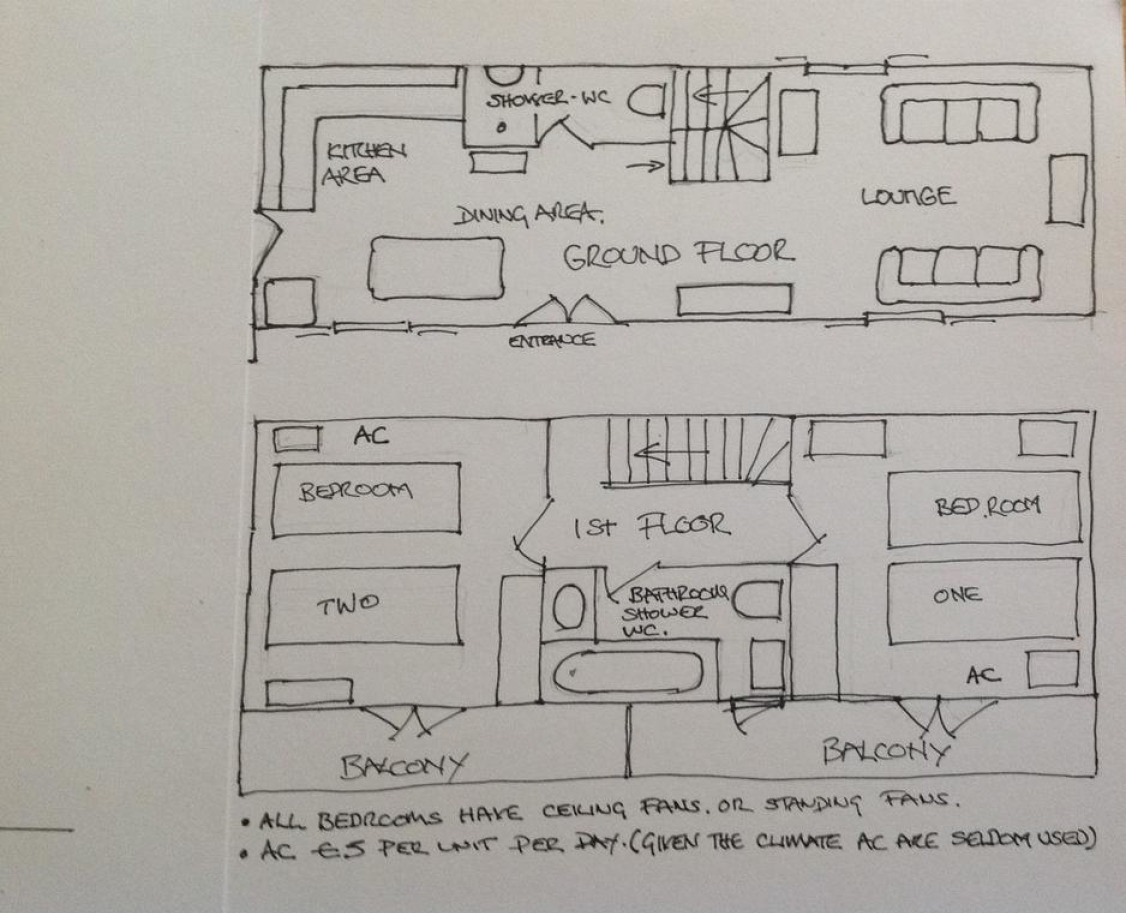 SHOWER-WC
KITCHEN
AREA
LOUNGE
DINING AREA.
GROUND FLOOR
ENTRANCE
AC
BEDROOM
BED.ROOM
1St FLOOR
BATHROOM
SHOWER
WC.
TWO
ONE
AC
BALCONY
BALCONY
• ALL BEDROOMS HAVE CEILING FANS. OR STANDING FANS.
• AC €5 PER UNIT PER DAY. (GIVEN THE CLIMATE AC ARE SELDOM USED)